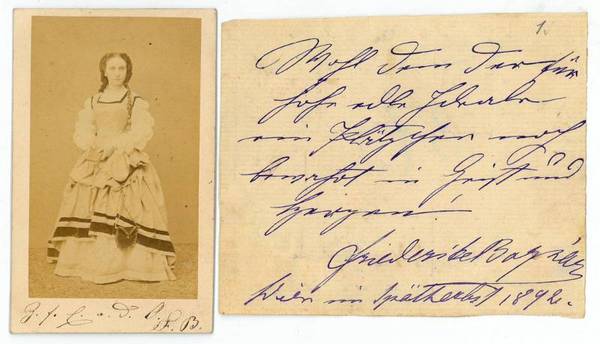 1.
Wohl dem der für
hohe edle Ideale
ein Plätzchen noch
bewahrt in Geist und
Herzen!
Friederike Bognár
Wien im Spätherbst 1892.
F. B.